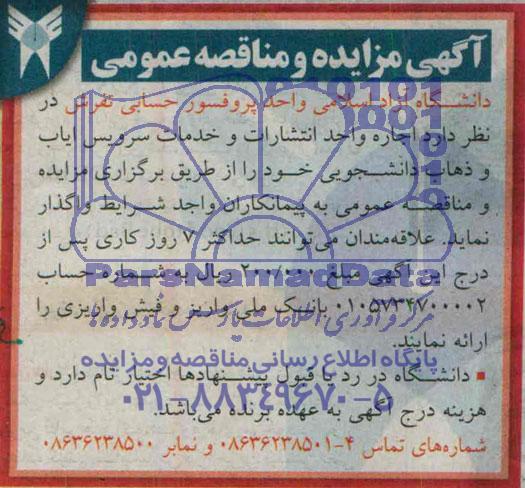 آگهی مزایده و مناقصه عمومی
دانشگاه آزاد اسلامی واحد پروفسور حسابی تفرش در
نظر دارد اجاره واحد انتشارات و خدمات سرویس ایاب
و ذهاب دانشجویی خود را از طریق برگزاری مزایده
و مناقصه عمومی به پیمانکاران واجد شرایط واگذار
نماید. علاقه‌مندان می‌توانند حداکثر ۷ روز کاری پس از
درج این آگهی مبلغ ۲۰۰/۰۰۰ ریال به شماره حساب
ParsNamadData
۰۱۰۵۷۳۴۷۰۰۰۰۲ بانک ملی واریز و فیش واریزی را
مرکز فرآوری اطلاعات پارس نماد داده‌ها
ارائه نمایند.
پایگاه اطلاع رسانی مناقصه و مزایده
▪ دانشگاه در رد یا قبول پیشنهادها اختیار تام دارد و
۰۲۱-۸۸۳۴۹۶۷۰-۵
هزینه درج آگهی به عهده برنده می‌باشد.
شماره‌های تماس ۴-۰۸۶۳۶۲۳۸۵۰۱ و نمابر ۰۸۶۳۶۲۳۸۵۰۰